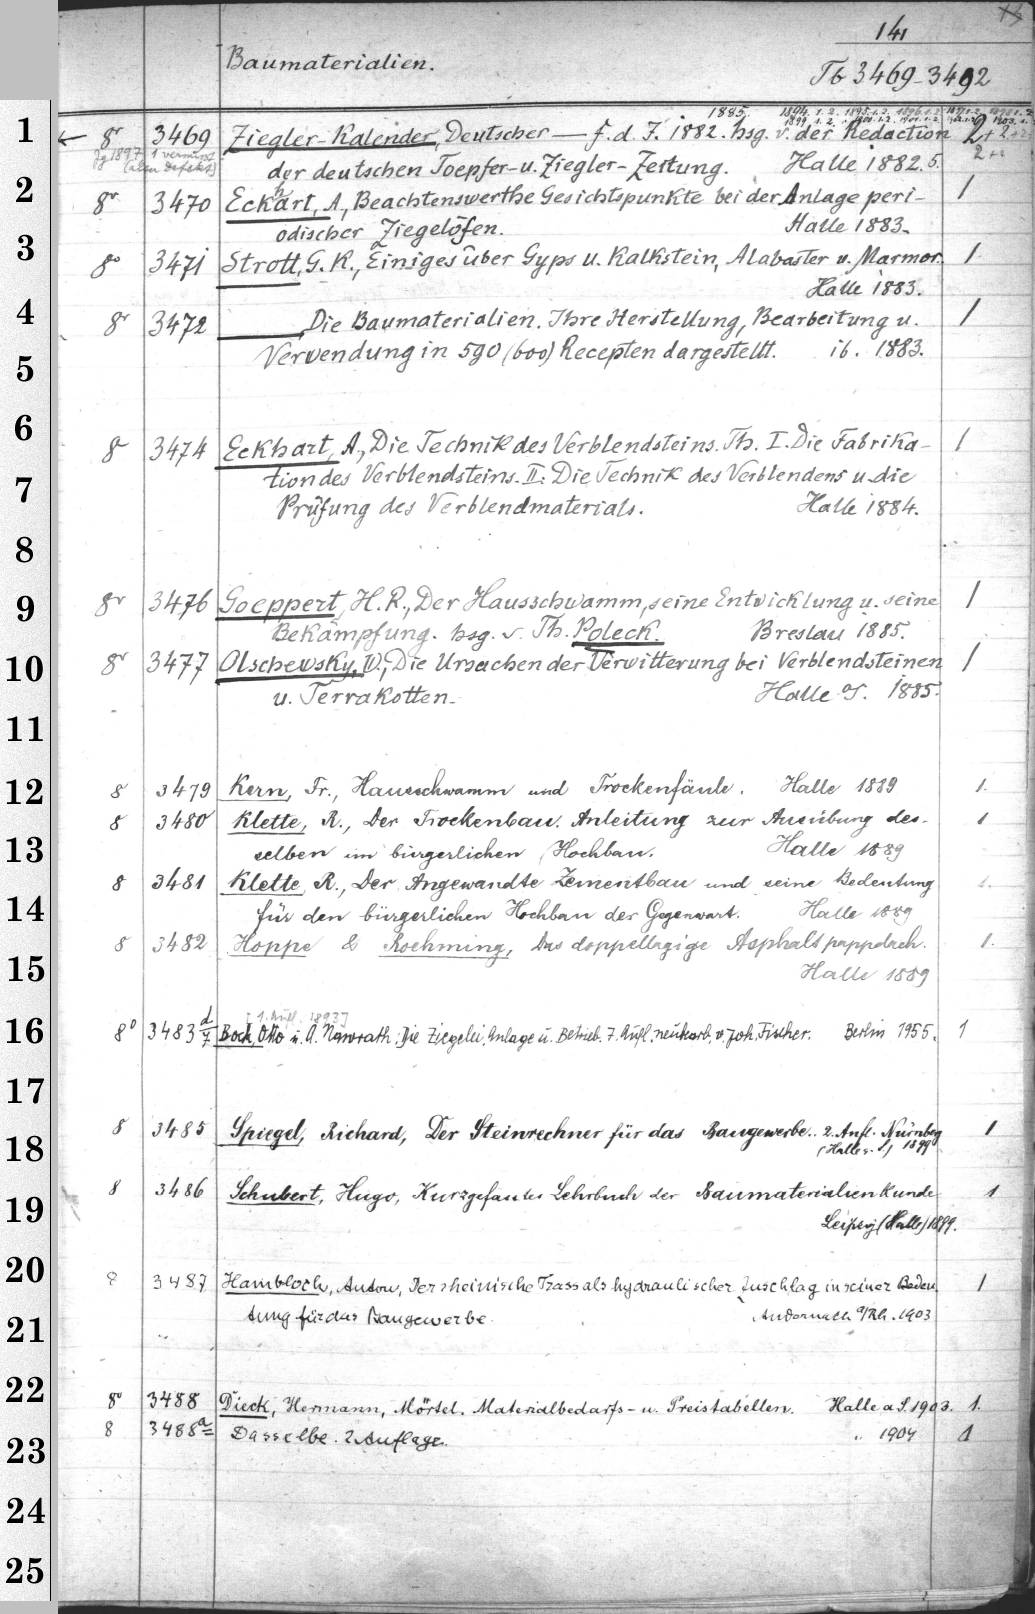 141
Baumaterialien.
Tb 3469-3492
1885. 1894. 1. 2. 1895. 1. 2. 1896. 1. 2.
1 ← 8r 3469 Ziegler-Kalender, Deutscher — f. d. J. 1882. hsg. v. der Redaction 2 + 2 + 2
Jg 1897, 1 vermisst
(alten defekt) der deutschen Toepfer- u. Ziegler-Zeitung. Halle 1882. 5.
2 8r 3470 Eckhart, A., Beachtenswerthe Gesichtspunkte bei der Anlage peri- 1
odischer Ziegelöfen. Halle 1883.
3 8o 3471 Strott, G. K., Einiges über Gyps u. Kalkstein, Alabaster u. Marmor. 1
Halle 1883.
4 8r 3472 ——— Die Baumaterialien. Ihre Herstellung, Bearbeitung u. 1
Verwendung in 590 (600) Recepten dargestellt. ib. 1883.
5
6 8 3474 Eckhart, A., Die Technik des Verblendsteins. Th. I. Die Fabrika- 1
7 tion des Verblendsteins. II: Die Technik des Verblendens u. die
Prüfung des Verblendmaterials. Halle 1884.
8
9 8r 3476 Goeppert, H. R., Der Hausschwamm, seine Entwicklung u. seine 1
Bekämpfung. hsg. v. Th. Poleck. Breslau 1885.
10 8r 3477 Olschewsky, W., Die Ursachen der Verwitterung bei Verblendsteinen 1
u. Terrakotten. Halle a/S. 1885.
11
12 8 3479 Kern, Fr., Hausschwamm und Trockenfäule. Halle 1889 1.
8 3480 Klette, R., Der Trockenbau. Anleitung zur Ausübung des- 1
13 selben im bürgerlichen Hochbau. Halle 1889
8 3481 Klette, R., Der Angewandte Zementbau und seine Bedeutung 1.
14 für den bürgerlichen Hochbau der Gegenwart. Halle 1889
8 3482 Hoppe & Roehming, Das doppellagige Asphaltpappdach. 1.
15 Halle 1889
[1. Aufl. 1893]
16 8o 3483 d/7 Bock, Otto u. A. Nawrath: Die Ziegelei. Anlage u. Betrieb. 7. Aufl. neubearb. v. Joh. Fischer. Berlin 1955. 1
17
8 3485 Spiegel, Richard, Der Steinrechner für das Baugewerbe. 2. Aufl. Nürnberg 1
18 (Halle a. S.) 1899
8 3486 Schubert, Hugo, Kurzgefasstes Lehrbuch der Baumaterialienkunde 1
19 Leipzig (Halle) 1899.
20 8 3487 Hambloch, Anton, Der rheinische Trass als hydraulischer Zuschlag in seiner Bedeu 1
21 tung für das Baugewerbe. Andernach a/Rh. 1903
22 8o 3488 Dieck, Hermann, Mörtel. Materialbedarfs- u. Preistabellen. Halle a S. 1903. 1.
23 8 3488a Dasselbe. 2 Auflage. " 1904 1
24
25